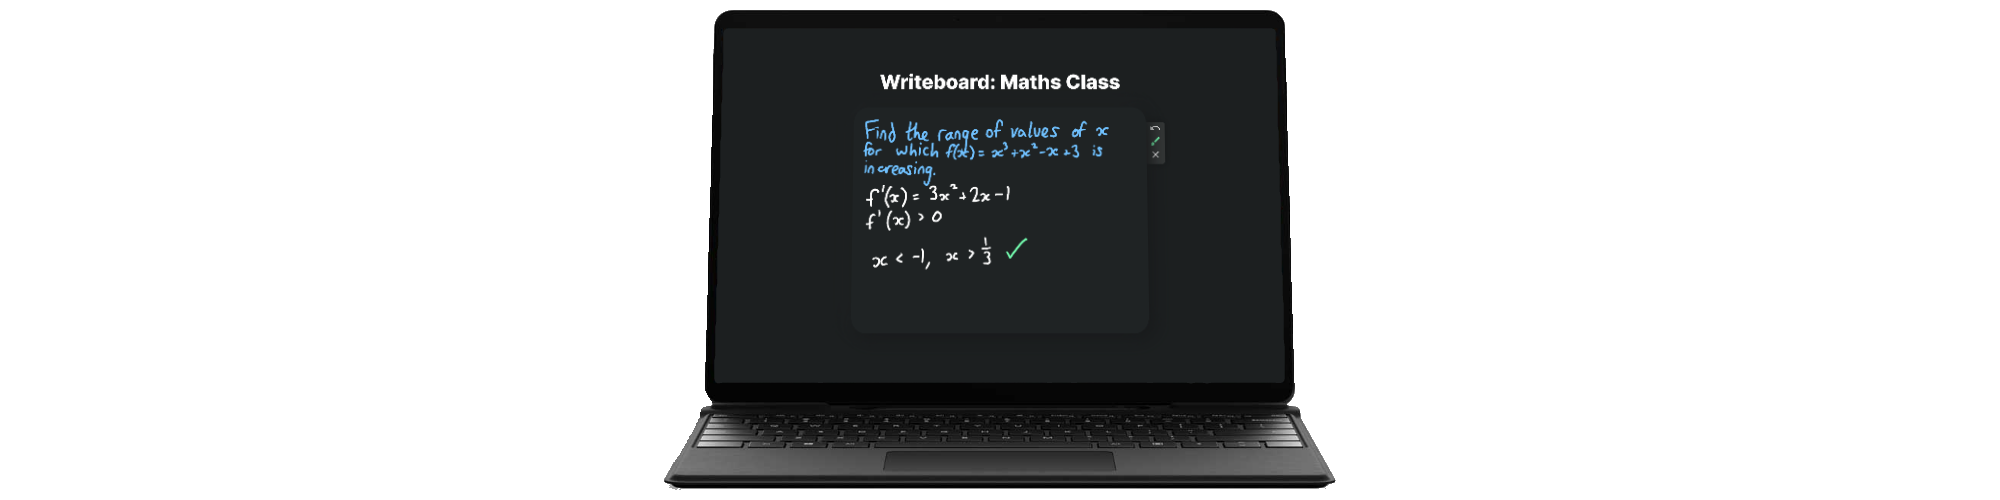 Writeboard: Maths Class
Find the range of values of x
for which f(x) = x³+x²-x+3 is
increasing.
f'(x) = 3x²+2x-1
f'(x) > 0
x < -1, x > 1/3 ✓